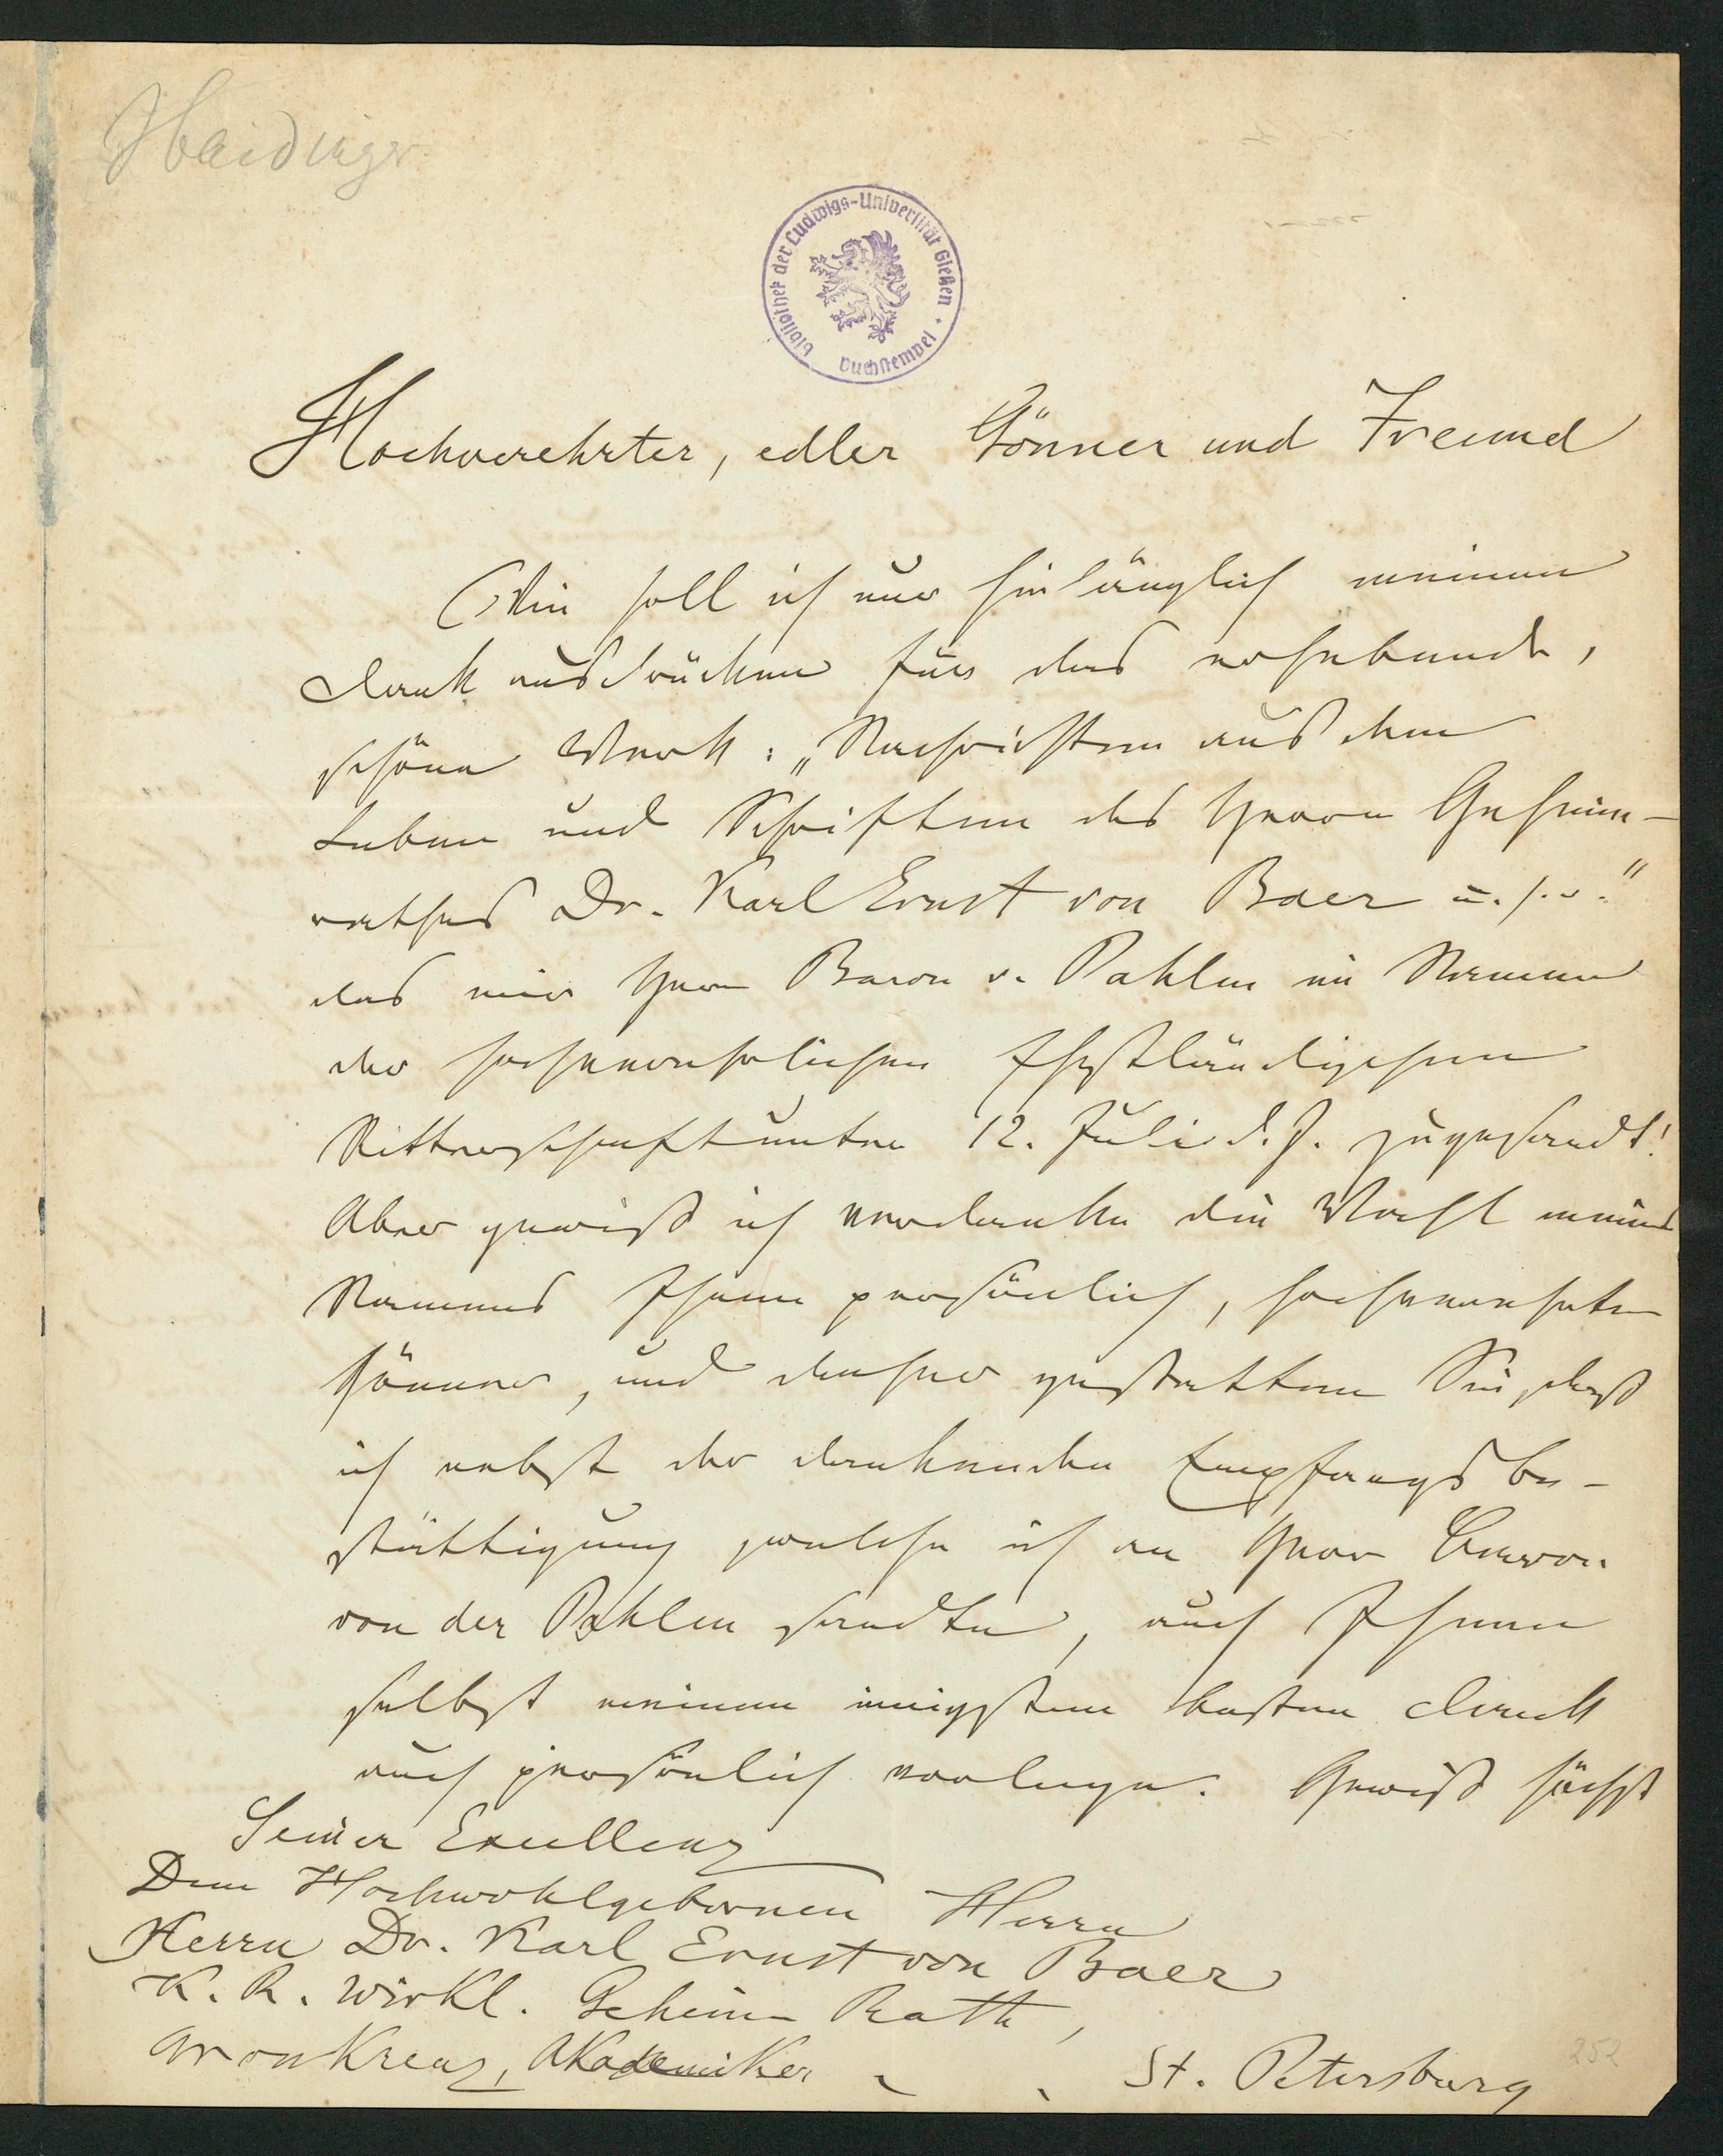 Haidinger
Bibliothek der Ludwigs-Universität Gießen
Buchstempel
Hochverehrter, edler Gönner und Freund
Wie soll ich nur hinlänglich meinen
Dank ausdrücken für das erhebende,
schöne Werk: „Nachrichten aus dem
Leben und Schriften des Herrn Geheim-
rathes Dr. Karl Ernst von Baer u. s. w."
das mir Herr Baron v. Pahlen im Namen
der hochverehrlichen Ehstländischen
Ritterschaft unter 12. Juli d. J. zugesandt!
Aber gewiß ich verdanke die Wahl meines
Namens Ihnen persönlich, hochverehrter
Gönner, und daher gestatten Sie, daß
ich nebst der dankenden Empfangsbe-
stättigung welche ich an Herrn Baron
von der Pahlen sandte, auch Ihnen
selbst meinen innigsten besten Dank
auch persönlich vorlege. Gewiß höchst
Seiner Excellenz
Dem Hochwohlgebornen Herrn
Herrn Dr. Karl Ernst von Baer
K. R. Wirkl. Geheim Rath,
Akademiker
St. Petersburg
252